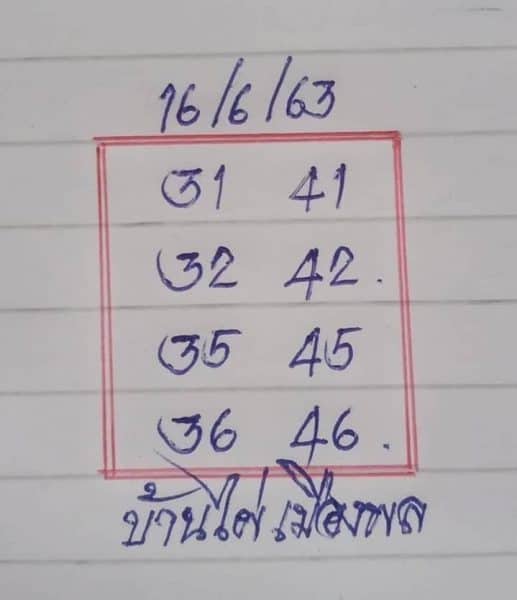 16/6/63
31 41
32 42.
35 45
36 46.
บ้านไผ่ เมืองพล